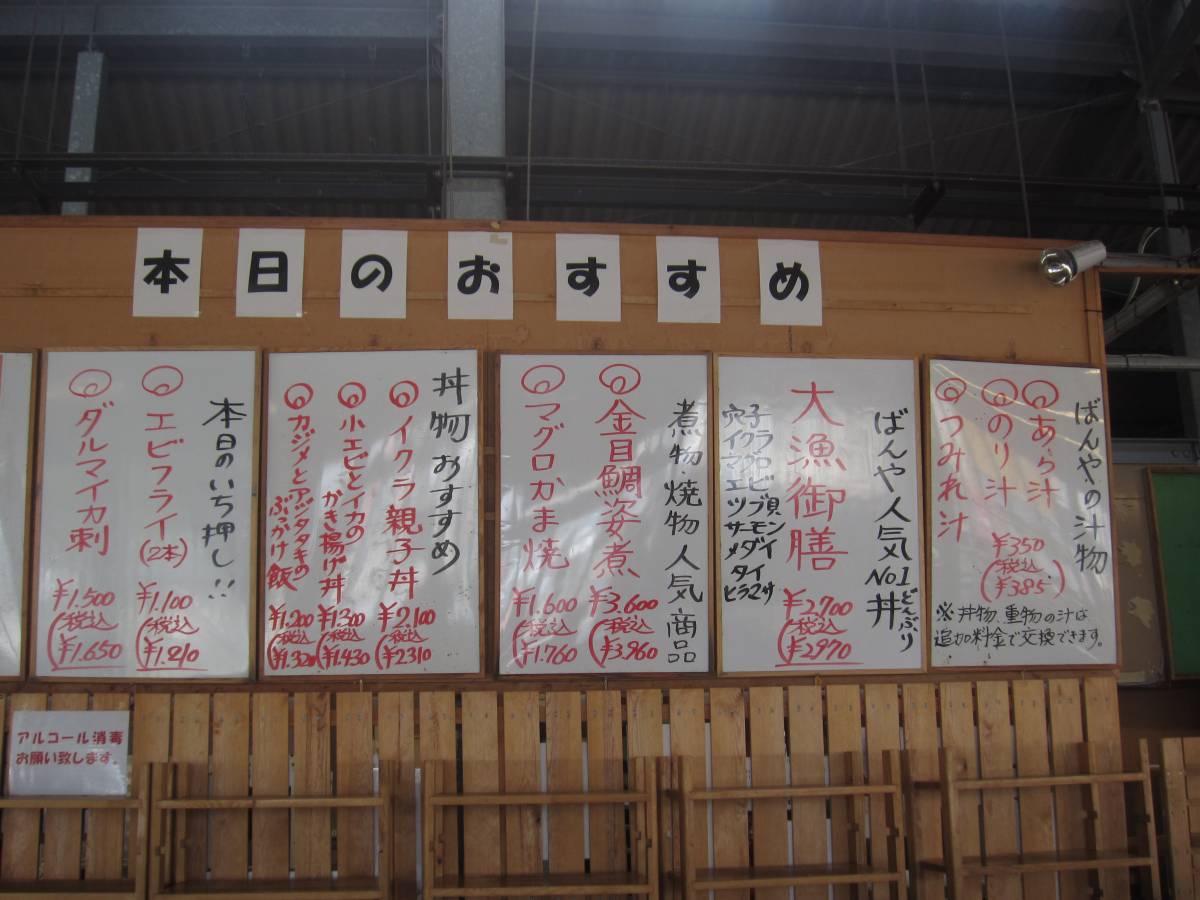 本日のおすすめ
ばんやの汁物
あら汁
のり汁
つみれ汁
¥350
(税込
¥385)
※丼物、重物の汁は
追加料金で交換できます。
ばんや人気No1丼
どんぶり
大漁御膳
¥2,700
(税込
¥2970)
穴子
イクラ
マグロ
エビ
ツブ貝
サーモン
メダイ
タイ
ヒラマサ
煮物焼物人気商品
金目鯛姿煮
¥3.600
(税込
¥3.960)
マグロかま焼
¥1.600
(税込
¥1.760)
丼物おすすめ
イクラ親子丼
¥2.100
(税込
¥2310)
小エビとイカの
かき揚げ丼
¥1.300
(税込
¥1.430)
カジメとアジタタキの
ぶっかけ飯
¥1.200
(税込
¥1.320)
本日のいち押し!!
エビフライ(2本)
¥1.100
(税込
¥1.210)
ダルマイカ刺
¥1.500
(税込
¥1.650)
アルコール消毒
お願い致します。